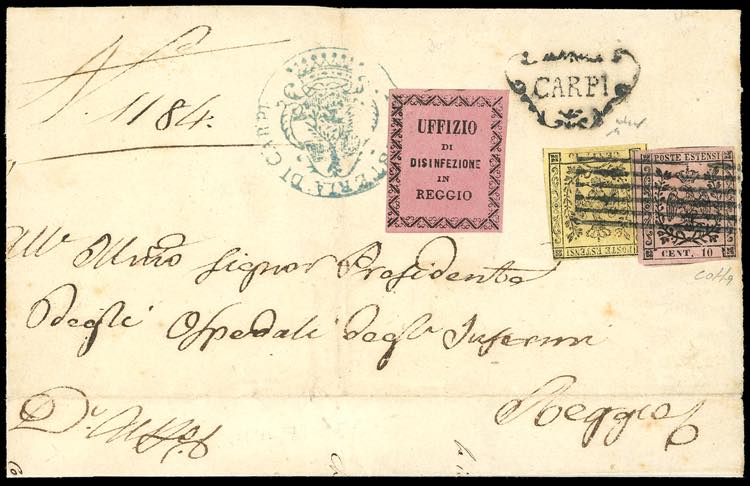 N.° 1184.
STERIA DI CARPI
CARPI
UFFIZIO
DI
DISINFEZIONE
IN
REGGIO
POSTE ESTENSI
POSTE ESTENSI
CENT. 10
Signor Presidente
Degli Ospedali degl' Infermi
Reggio